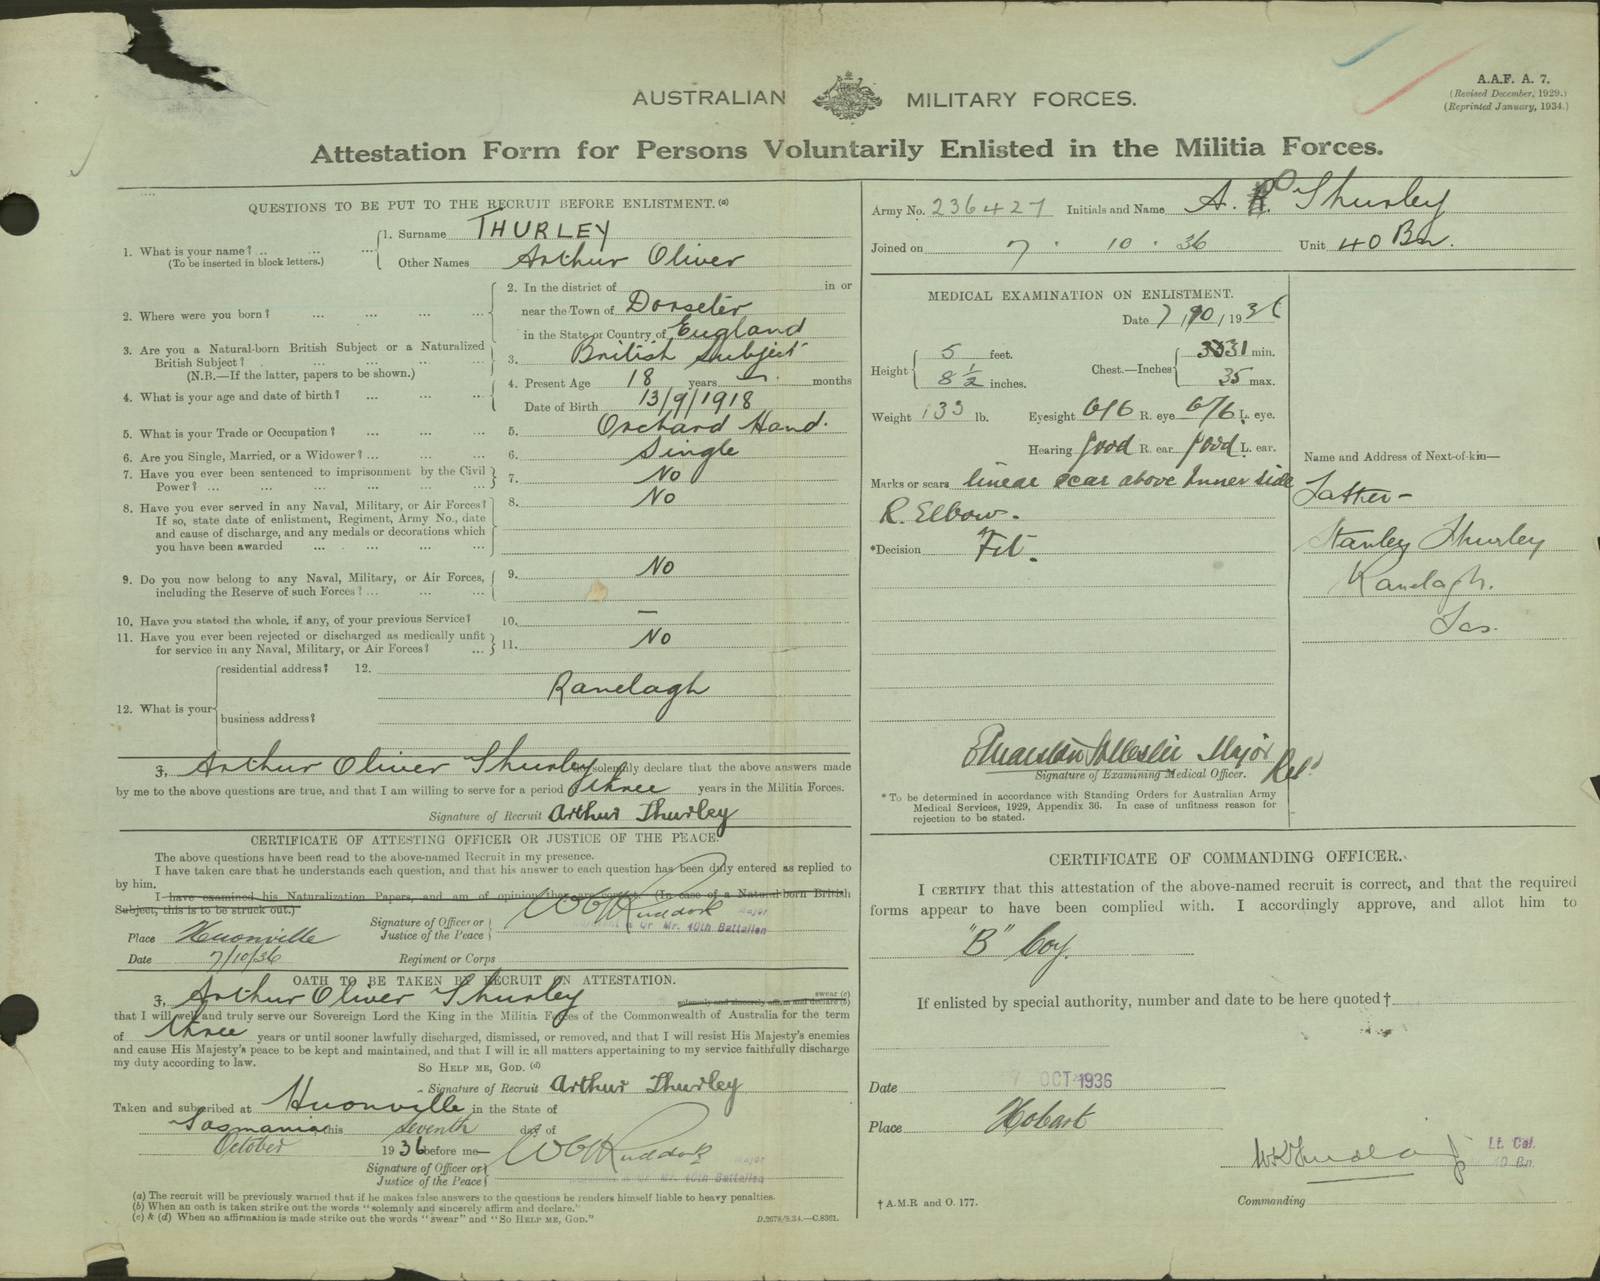 AUSTRALIAN MILITARY FORCES.
A.A.F. A. 7.
(Revised December, 1929.)
(Reprinted January, 1934.)
Attestation Form for Persons Voluntarily Enlisted in the Militia Forces.
QUESTIONS TO BE PUT TO THE RECRUIT BEFORE ENLISTMENT.(a)
1. What is your name? .. ... ...
(To be inserted in block letters.)
1. Surname THURLEY
Other Names Arthur Oliver
2. Where were you born? ... ... ... ...
2. In the district of in or
near the Town of Dorseter
in the State or Country of England
3. Are you a Natural-born British Subject or a Naturalized
British Subject? ... ... ...
(N.B.—If the latter, papers to be shown.)
3. British Subject
4. What is your age and date of birth? ... ... ...
4. Present Age 18 years months
Date of Birth 13/9/1918
5. What is your Trade or Occupation? ... ... ...
5. Orchard Hand.
6. Are you Single, Married, or a Widower? ... ... ...
6. Single
7. Have you ever been sentenced to imprisonment by the Civil
Power? ... ... ... ... ...
7. No
8. Have you ever served in any Naval, Military, or Air Forces?
If so, state date of enlistment, Regiment, Army No., date
and cause of discharge, and any medals or decorations which
you have been awarded ... ... ... ...
8. No
9. Do you now belong to any Naval, Military, or Air Forces,
including the Reserve of such Forces? ... ... ...
9. No
10. Have you stated the whole, if any, of your previous Service?
10. —
11. Have you ever been rejected or discharged as medically unfit
for service in any Naval, Military, or Air Forces? ...
11. No
12. What is your
residential address? 12.
Ranelagh
business address?
I, Arthur Oliver Thurley solemnly declare that the above answers made
by me to the above questions are true, and that I am willing to serve for a period three years in the Militia Forces.
Signature of Recruit Arthur Thurley
CERTIFICATE OF ATTESTING OFFICER OR JUSTICE OF THE PEACE.
The above questions have been read to the above-named Recruit in my presence.
I have taken care that he understands each question, and that his answer to each question has been duly entered as replied to
by him.
I have examined his Naturalization Papers, and am of opinion they are correct. (In case of a Natural-born British
Subject, this is to be struck out.)
Signature of Officer or
Justice of the Peace
Major
Qr Mr. 40th Battalion
Place Huonville
Date 7/10/36
Regiment or Corps
OATH TO BE TAKEN BY RECRUIT ON ATTESTATION.
I, Arthur Oliver Thurley swear (c)
solemnly and sincerely affirm and declare (b)
that I will well and truly serve our Sovereign Lord the King in the Militia Forces of the Commonwealth of Australia for the term
of three years or until sooner lawfully discharged, dismissed, or removed, and that I will resist His Majesty's enemies
and cause His Majesty's peace to be kept and maintained, and that I will in all matters appertaining to my service faithfully discharge
my duty according to law.
SO HELP ME, GOD. (d)
Signature of Recruit Arthur Thurley
Taken and subscribed at Huonville in the State of
Tasmania this seventh day of
October 1936 before me—
Signature of Officer or
Justice of the Peace
Major
Qr Mr. 40th Battalion
(a) The recruit will be previously warned that if he makes false answers to the questions he renders himself liable to heavy penalties.
(b) When an oath is taken strike out the words "solemnly and sincerely affirm and declare."
(c) & (d) When an affirmation is made strike out the words "swear" and "So HELP ME, GOD."
D.2678/3.34.—C.8361.
Army No. 236427 Initials and Name A. O Thurley
Joined on 7 . 10 . 36 Unit 40 Bn.
MEDICAL EXAMINATION ON ENLISTMENT.
Date 7/10/1936
Height 5 feet.
8 1/2 inches.
Chest.—Inches 31 min.
35 max.
Weight 133 lb. Eyesight 6/6 R. eye 6/6 L. eye.
Hearing good R. ear good L. ear.
Marks or scars linear scar above Inner side
R. Elbow.
*Decision Fit.
Name and Address of Next-of-kin—
Father—
Stanley Thurley
Ranelagh.
Tas.
Major
Signature of Examining Medical Officer.
*To be determined in accordance with Standing Orders for Australian Army
Medical Services, 1929, Appendix 36. In case of unfitness reason for
rejection to be stated.
CERTIFICATE OF COMMANDING OFFICER.
I CERTIFY that this attestation of the above-named recruit is correct, and that the required
forms appear to have been complied with. I accordingly approve, and allot him to
"B" Coy.
If enlisted by special authority, number and date to be here quoted †
Date 7 OCT 1936
Place Hobart
Lt. Col.
40 Bn.
Commanding
† A.M.R. and O. 177.